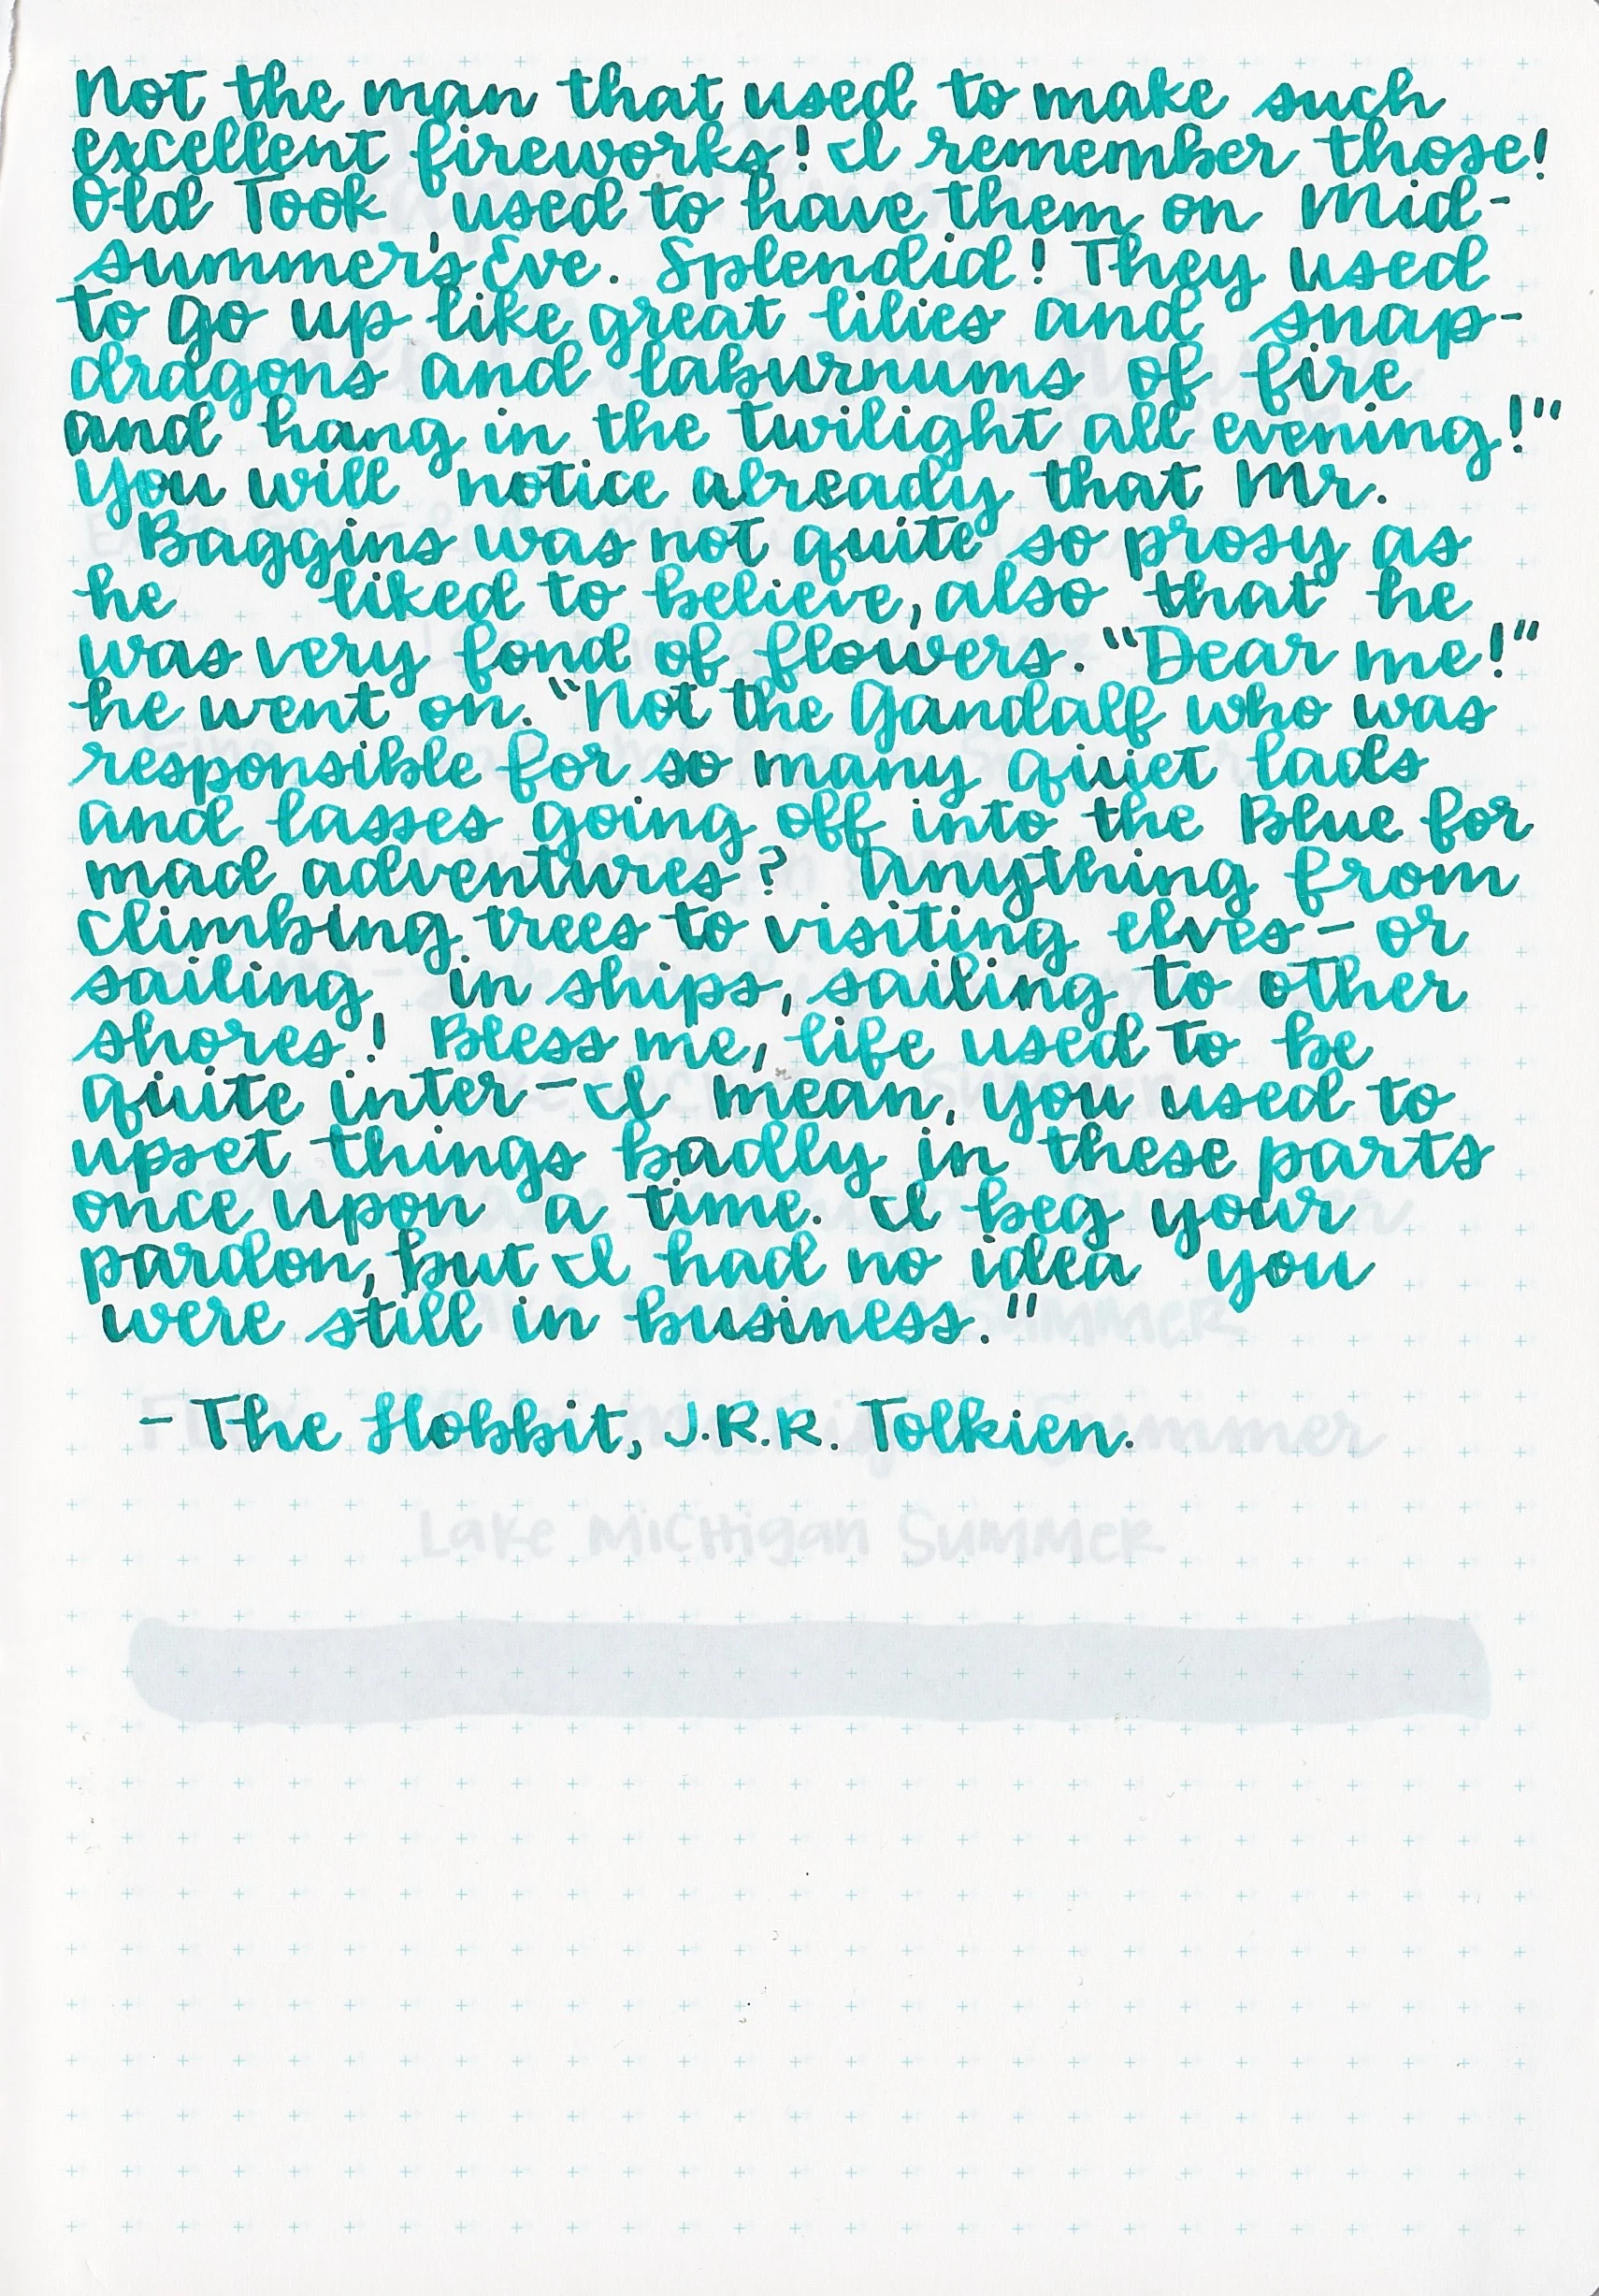 Not the man that used to make such
excellent fireworks! I remember those!
Old Took used to have them on Mid-
summer's Eve. Splendid! They used
to go up like great lilies and snap-
dragons and laburnums of fire
and hang in the twilight all evening!"
You will notice already that Mr.
Baggins was not quite so prosy as
he liked to believe, also that he
was very fond of flowers. "Dear me!"
he went on. "Not the Gandalf who was
responsible for so many quiet lads
and lasses going off into the Blue for
mad adventures? Anything from
climbing trees to visiting elves - or
sailing in ships, sailing to other
shores! Bless me, life used to be
quite inter - I mean, you used to
upset things badly in these parts
once upon a time. I beg your
pardon, but I had no idea you
were still in business."
- The Hobbit, J.R.R. Tolkien.
Lake Michigan Summer